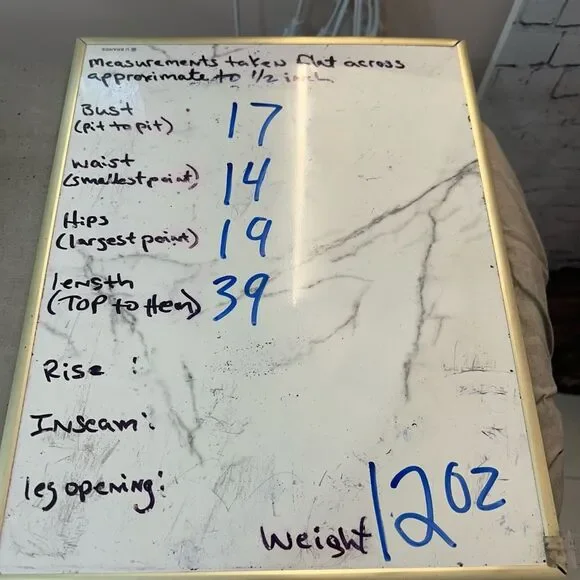 measurements taken flat across
approximate to 1/2 inch
Bust
(pit to pit) 17
waist
(smallest point) 14
Hips
(largest point) 19
length
(TOP to Hem) 39
Rise :
Inseam:
leg opening:
Weight 12oz